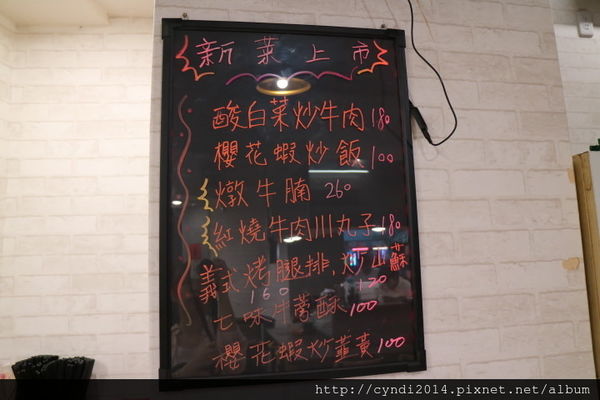 新菜上市
酸白菜炒牛肉 180
櫻花蝦炒飯 100
燉牛腩 260
紅燒牛肉川丸子 180
義式烤腿排,炒山蘇
160 120
七味牛蒡酥 100
櫻花蝦炒韮黃 100
http://cyndi2014.pixnet.net/album